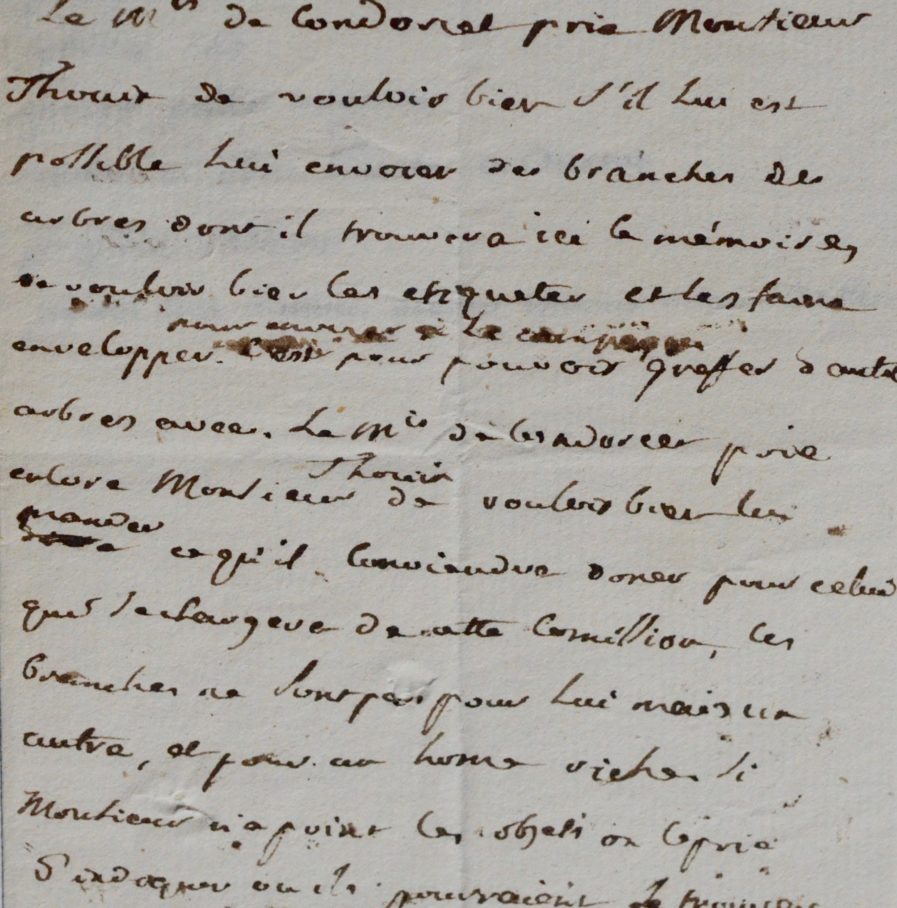 Le Mis de Condorcet prie Monsieur
Thouin de vouloir bien s'il lui est
possible lui envoier des branches des
arbres dont il trouvera ici le mémoire,
de vouloir bien les etiqueter et les faire
pour envoier à la campagne
envelopper. C'est pour pouvoir greffer d'autres
arbres avec. Le Mis de Condorcet prie
encore Monsieur Thouin de vouloir bien lui
mander ce qu'il conviendra doner pour celui
qui se chargera de cette comission, les
branches ne sont pas pour lui mais un
autre, et pour un home riche. si
Monsieur n'a point les objets on le prie
d'indiquer ou ils pourraient se trouver